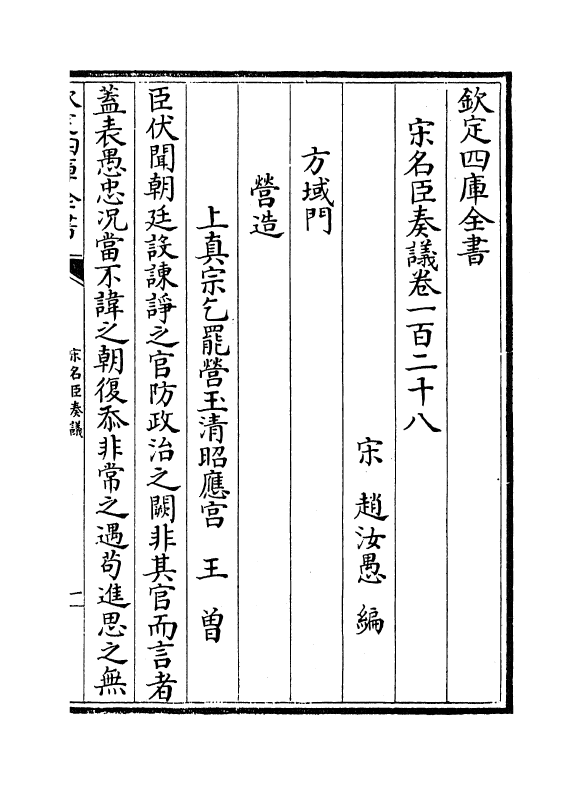 欽定四庫全書
宋名臣奏議卷一百二十八
宋 趙汝愚 編
方域門
營造
上真宗乞罷營玉清昭應宫 王 曾
臣伏聞朝廷設諫諍之官防政治之闕非其官而言者
蓋表愚忠況當不諱之朝復忝非常之遇苟進思之無
欽定四庫全書
宋名臣奏議
一